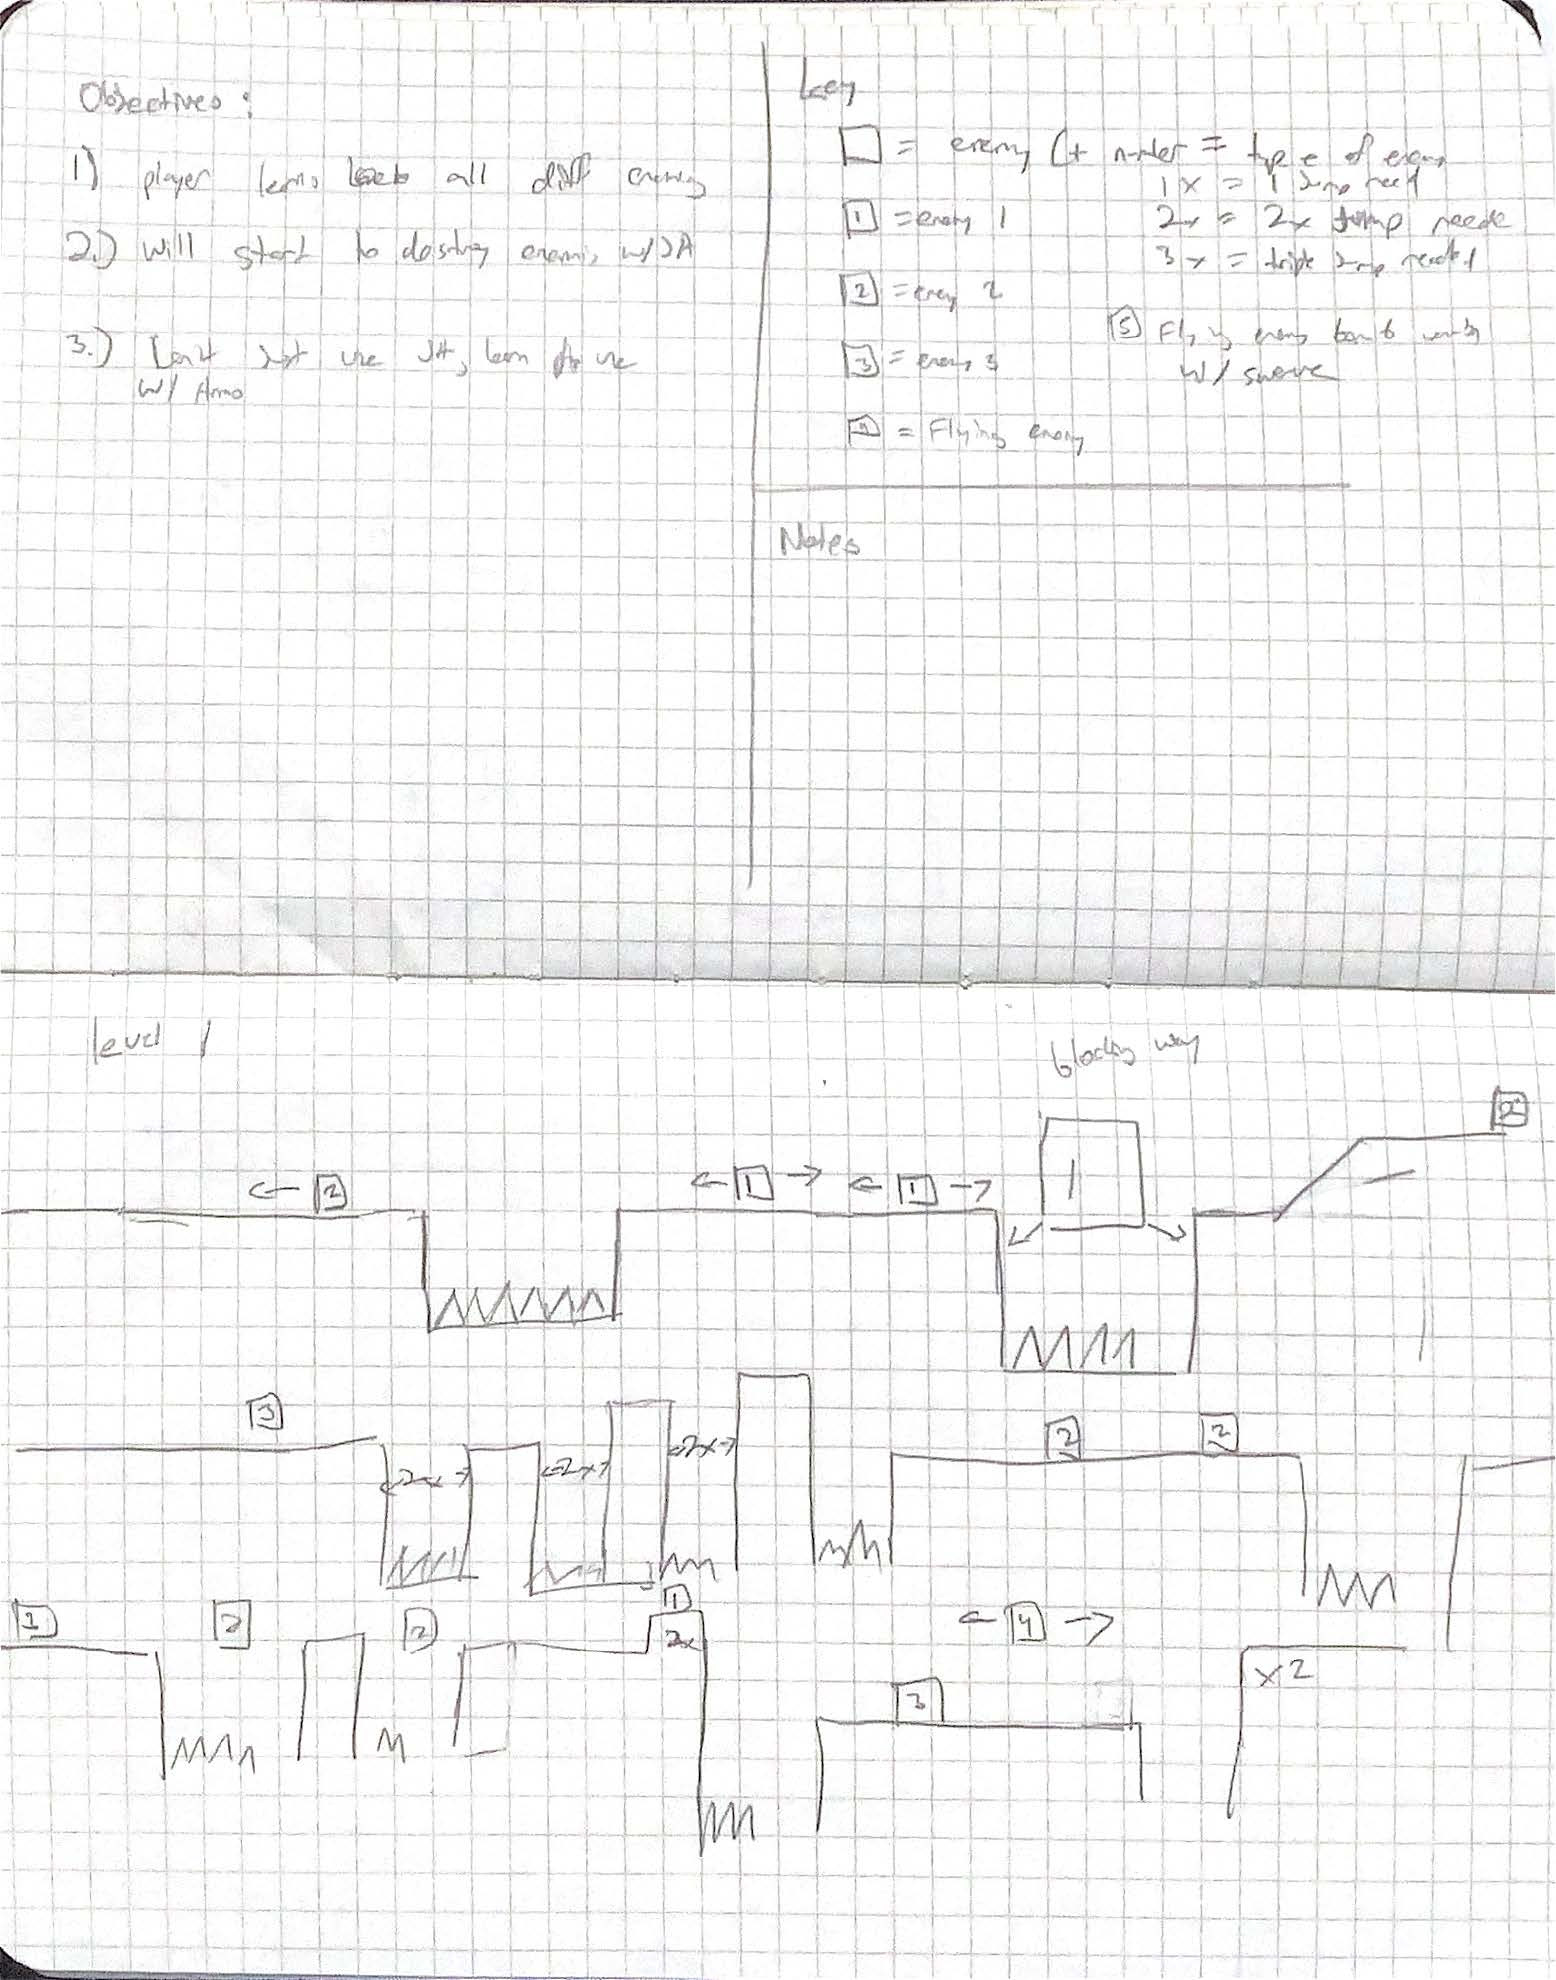 Objectives:
1) player all diff
2.) will start to w/JA
3.) just use JA, learn use
w/ Ammo
Key
= enemy (+ number = type of enemy
1x = 1 jump need
1 = enemy 1
2x = 2x jump neede
3x = triple jump needed
2 = enemy 2
5 Flying enemy
3 = enemy 3
w/
4 = Flying enemy
Notes
level 1
blocking way
2
1 1
1
2
3
2x 2x 2x
2 2
1 2 2
1
2x
4
3
x2